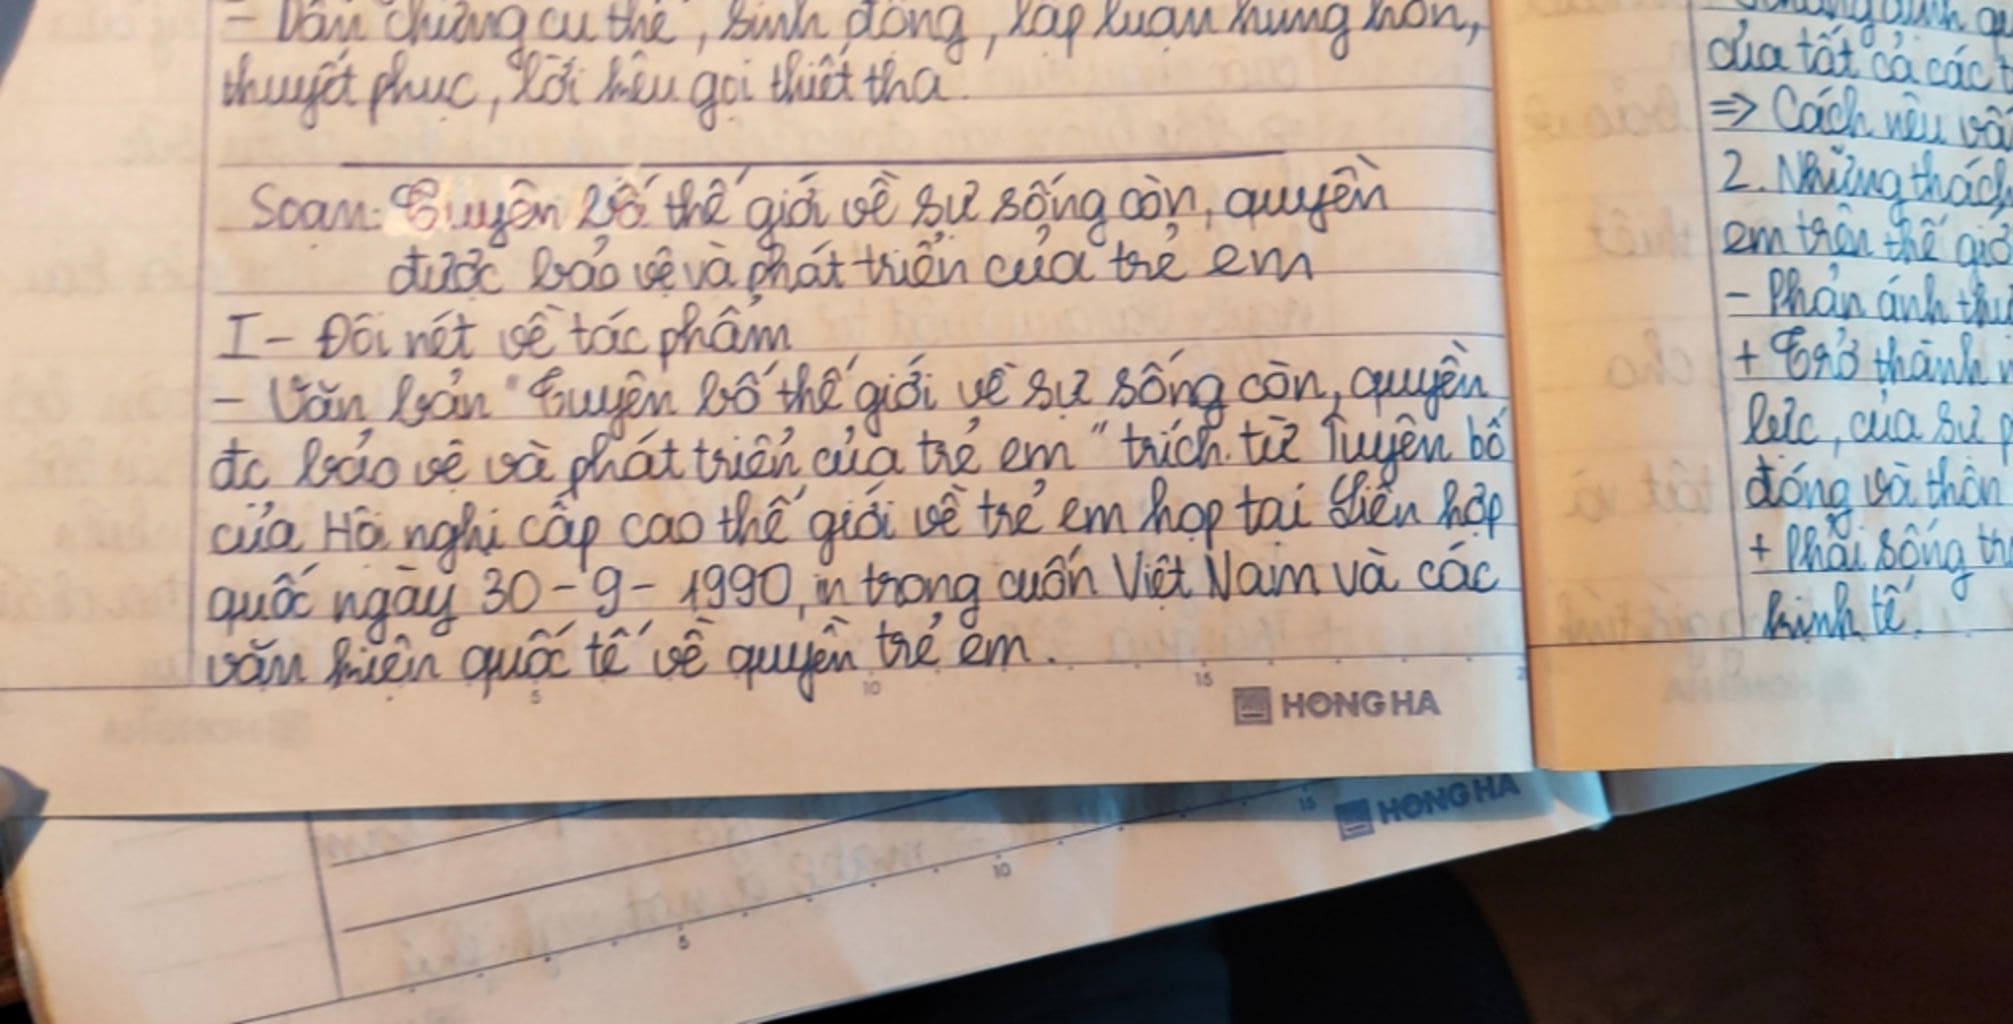 - Dẫn chứng cụ thể, sinh động, lập luận hùng hồn,
thuyết phục, lời kêu gọi thiết tha.
Soạn: Tuyên bố thế giới về sự sống còn, quyền
được bảo vệ và phát triển của trẻ em
I - Đôi nét về tác phẩm
- Văn bản "Tuyên bố thế giới về sự sống còn, quyền
đc bảo vệ và phát triển của trẻ em" trích từ Tuyên bố
của Hội nghị cấp cao thế giới về trẻ em họp tại Liên hợp
quốc ngày 30-9-1990, in trong cuốn Việt Nam và các
văn kiện quốc tế về quyền trẻ em.
5 10 15
HONG HA
của tất cả các
=> Cách nêu
2. Những
em trên thế
- Phản ánh
+ Trở thành
lực, của sự
đóng và
+ Phải sống
kinh tế.
5 10 15
HONG HA